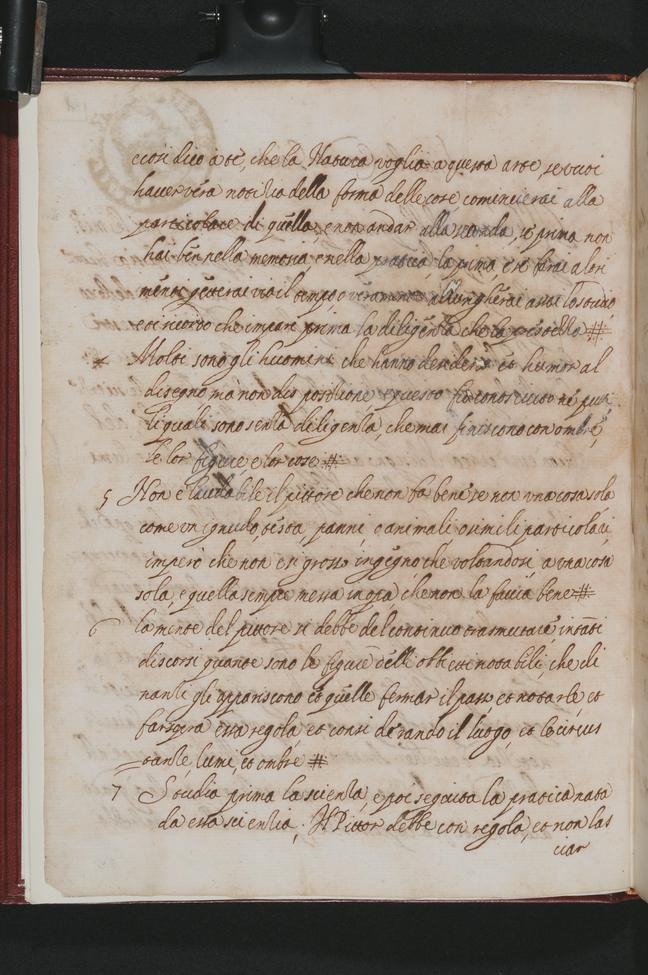 e cosi dico à té, che la Natura voglia a questa arte, se vuoi
haver vera notitia della forma delle cose comincierai alla
particolare di quella, e non andar alla seconda, se prima non
hai ben nella memoria, e nella pratica la prima, e se farai altri
mente getterai via il tempo o veramente allungherai assai lo studio
et ti ricordo che impari prima la diligenza che la prestezza #
* Molti sono gli huomini che hanno desiderio et humor al
disegno ma non dispositione, e questo fia conosciuto ne put
ti quali sono senza diligenza, che mai finiscono con ombre,
le lor figure, e lor cose #
5 Non é laudabile il pittore che non fa bene se non una cosa sola
come un ignudo testa, panni, o animali o simili particolari,
imperò che non é si grosso ingegno che voltandosi a una cosa
sola, e quella sempre messa in opra, che non la faccia bene #
6 la mente del pittore si debbe del continuo trasmutare in tati
discorsi quante sono le figure delli obbietti notabili, che di
nanti gli appariscono et quelle fermar il passo et notarle, et
far sopra essa regola, et considerando il luogo, et le circus
tante, lumi, et ombre #
7 Studia prima la scienza, e poi seguita la pratica nata
da essa scienzia, Il Pittor debbe con regola, et non las
ciar